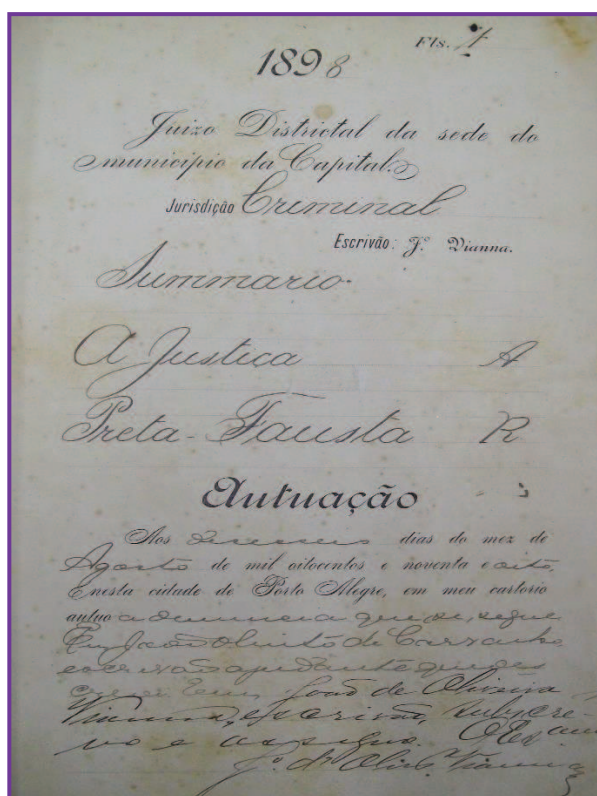 Fls. 1
1898
Juizo Districtal da sede do
municipio da Capital.
Jurisdição Criminal
Escrivão: J. Vianna.
Summario
A Justiça A
Preta Fausta R
Autuação
Aos dias do mez de
Agosto de mil oitocentos e noventa e oito,
nesta cidade de Porto Alegre, em meu cartorio
autuo a denuncia que se segue
Eu, João de Carvalho
escrivão ajudante que o
escrevi Eu, João de Oliveira
Vianna, escrivão, subscre-
vo e assigno.
Jº. de Oliv. Vianna